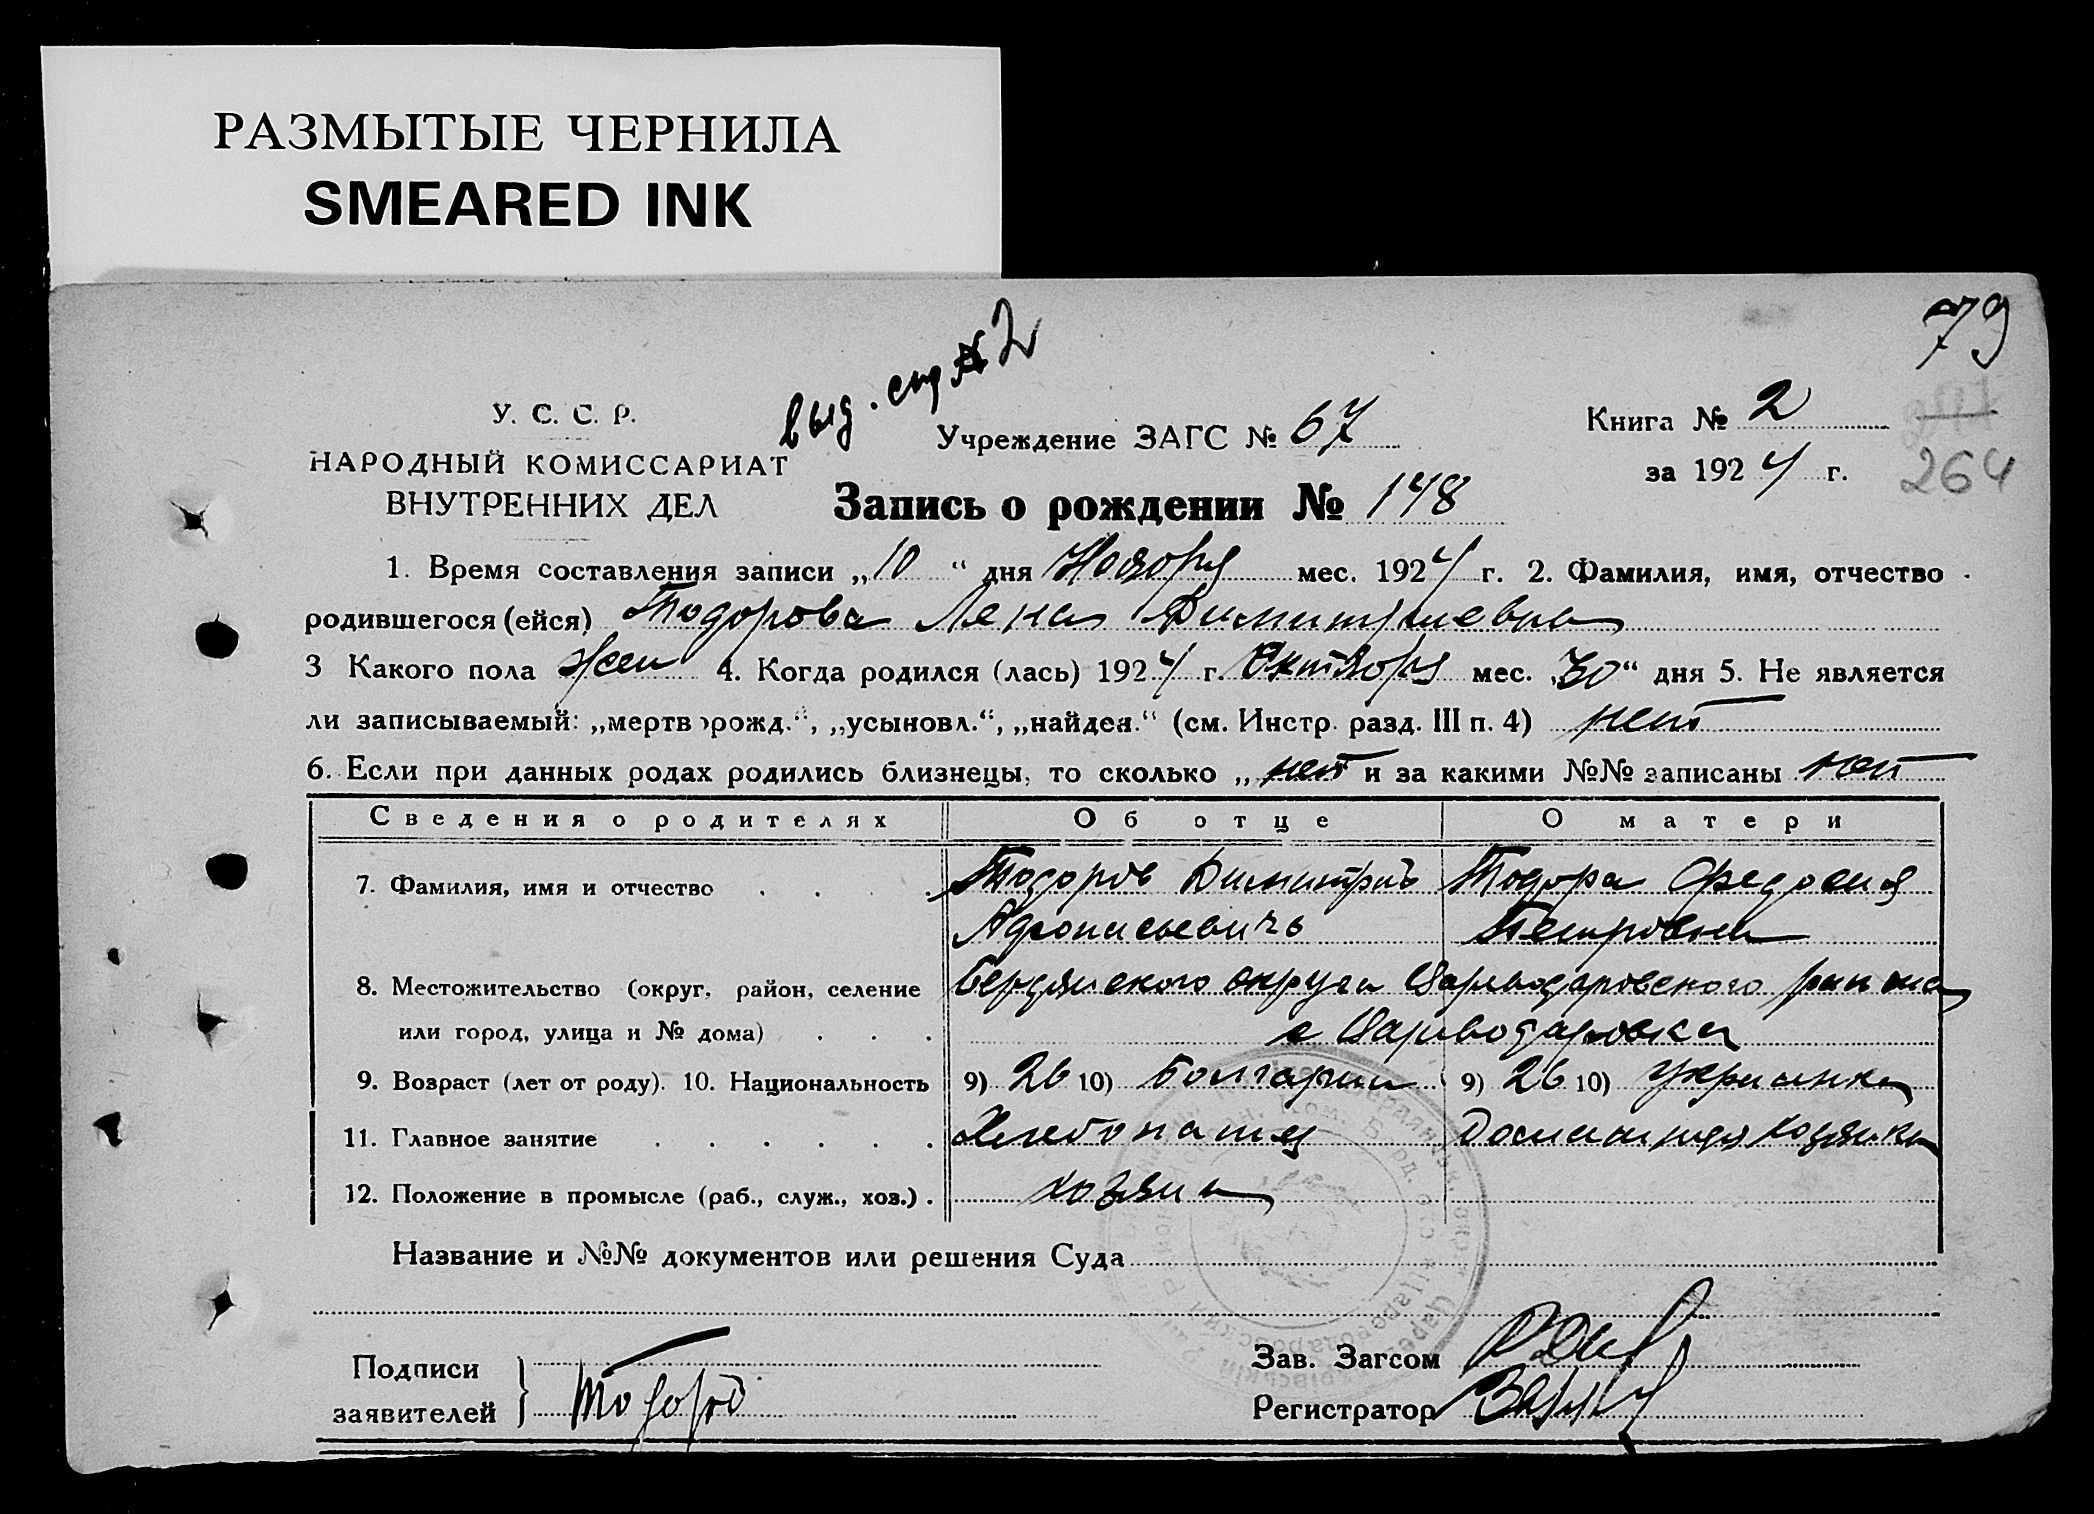 РАЗМЫТЫЕ ЧЕРНИЛА
SMEARED INK
79
выд. спр № 2
У. С. С. Р.
НАРОДНЫЙ КОМИССАРИАТ
ВНУТРЕННИХ ДЕЛ
Учреждение ЗАГС № 67
Книга № 2
за 1924 г.
264
Запись о рождении № 148
1. Время составления записи „10“ дня Ноября мес. 1924 г. 2. Фамилия, имя, отчество
родившегося (ейся) Тодорова Лена Димитриевна
3 Какого пола жен 4. Когда родился (лась) 1924 г. Октября мес. „30“ дня 5. Не является
ли записываемый: „мертворожд.“, „усыновл.“, „найден.“ (см. Инстр. разд. III п. 4) нет
6. Если при данных родах родились близнецы, то сколько „нет и за какими №№ записаны нет
Сведения о родителях Об отце О матери
7. Фамилия, имя и отчество Тодоров Димитрий Тодора Федосия
Афонасьевичъ Петровна
8. Местожительство (округ, район, селение Бердянского округа Царводаровского района
или город, улица и № дома) с Царводаровка
9. Возраст (лет от роду). 10. Национальность 9) 26 10) Болгарин 9) 26 10) Украинка
11. Главное занятие Хлебопашец Домашняя хозяйка
12. Положение в промысле (раб., служ., хоз.) хозяин
Название и №№ документов или решения Суда
Подписи
заявителей } Тодоров
Зав. Загсом
Регистратор